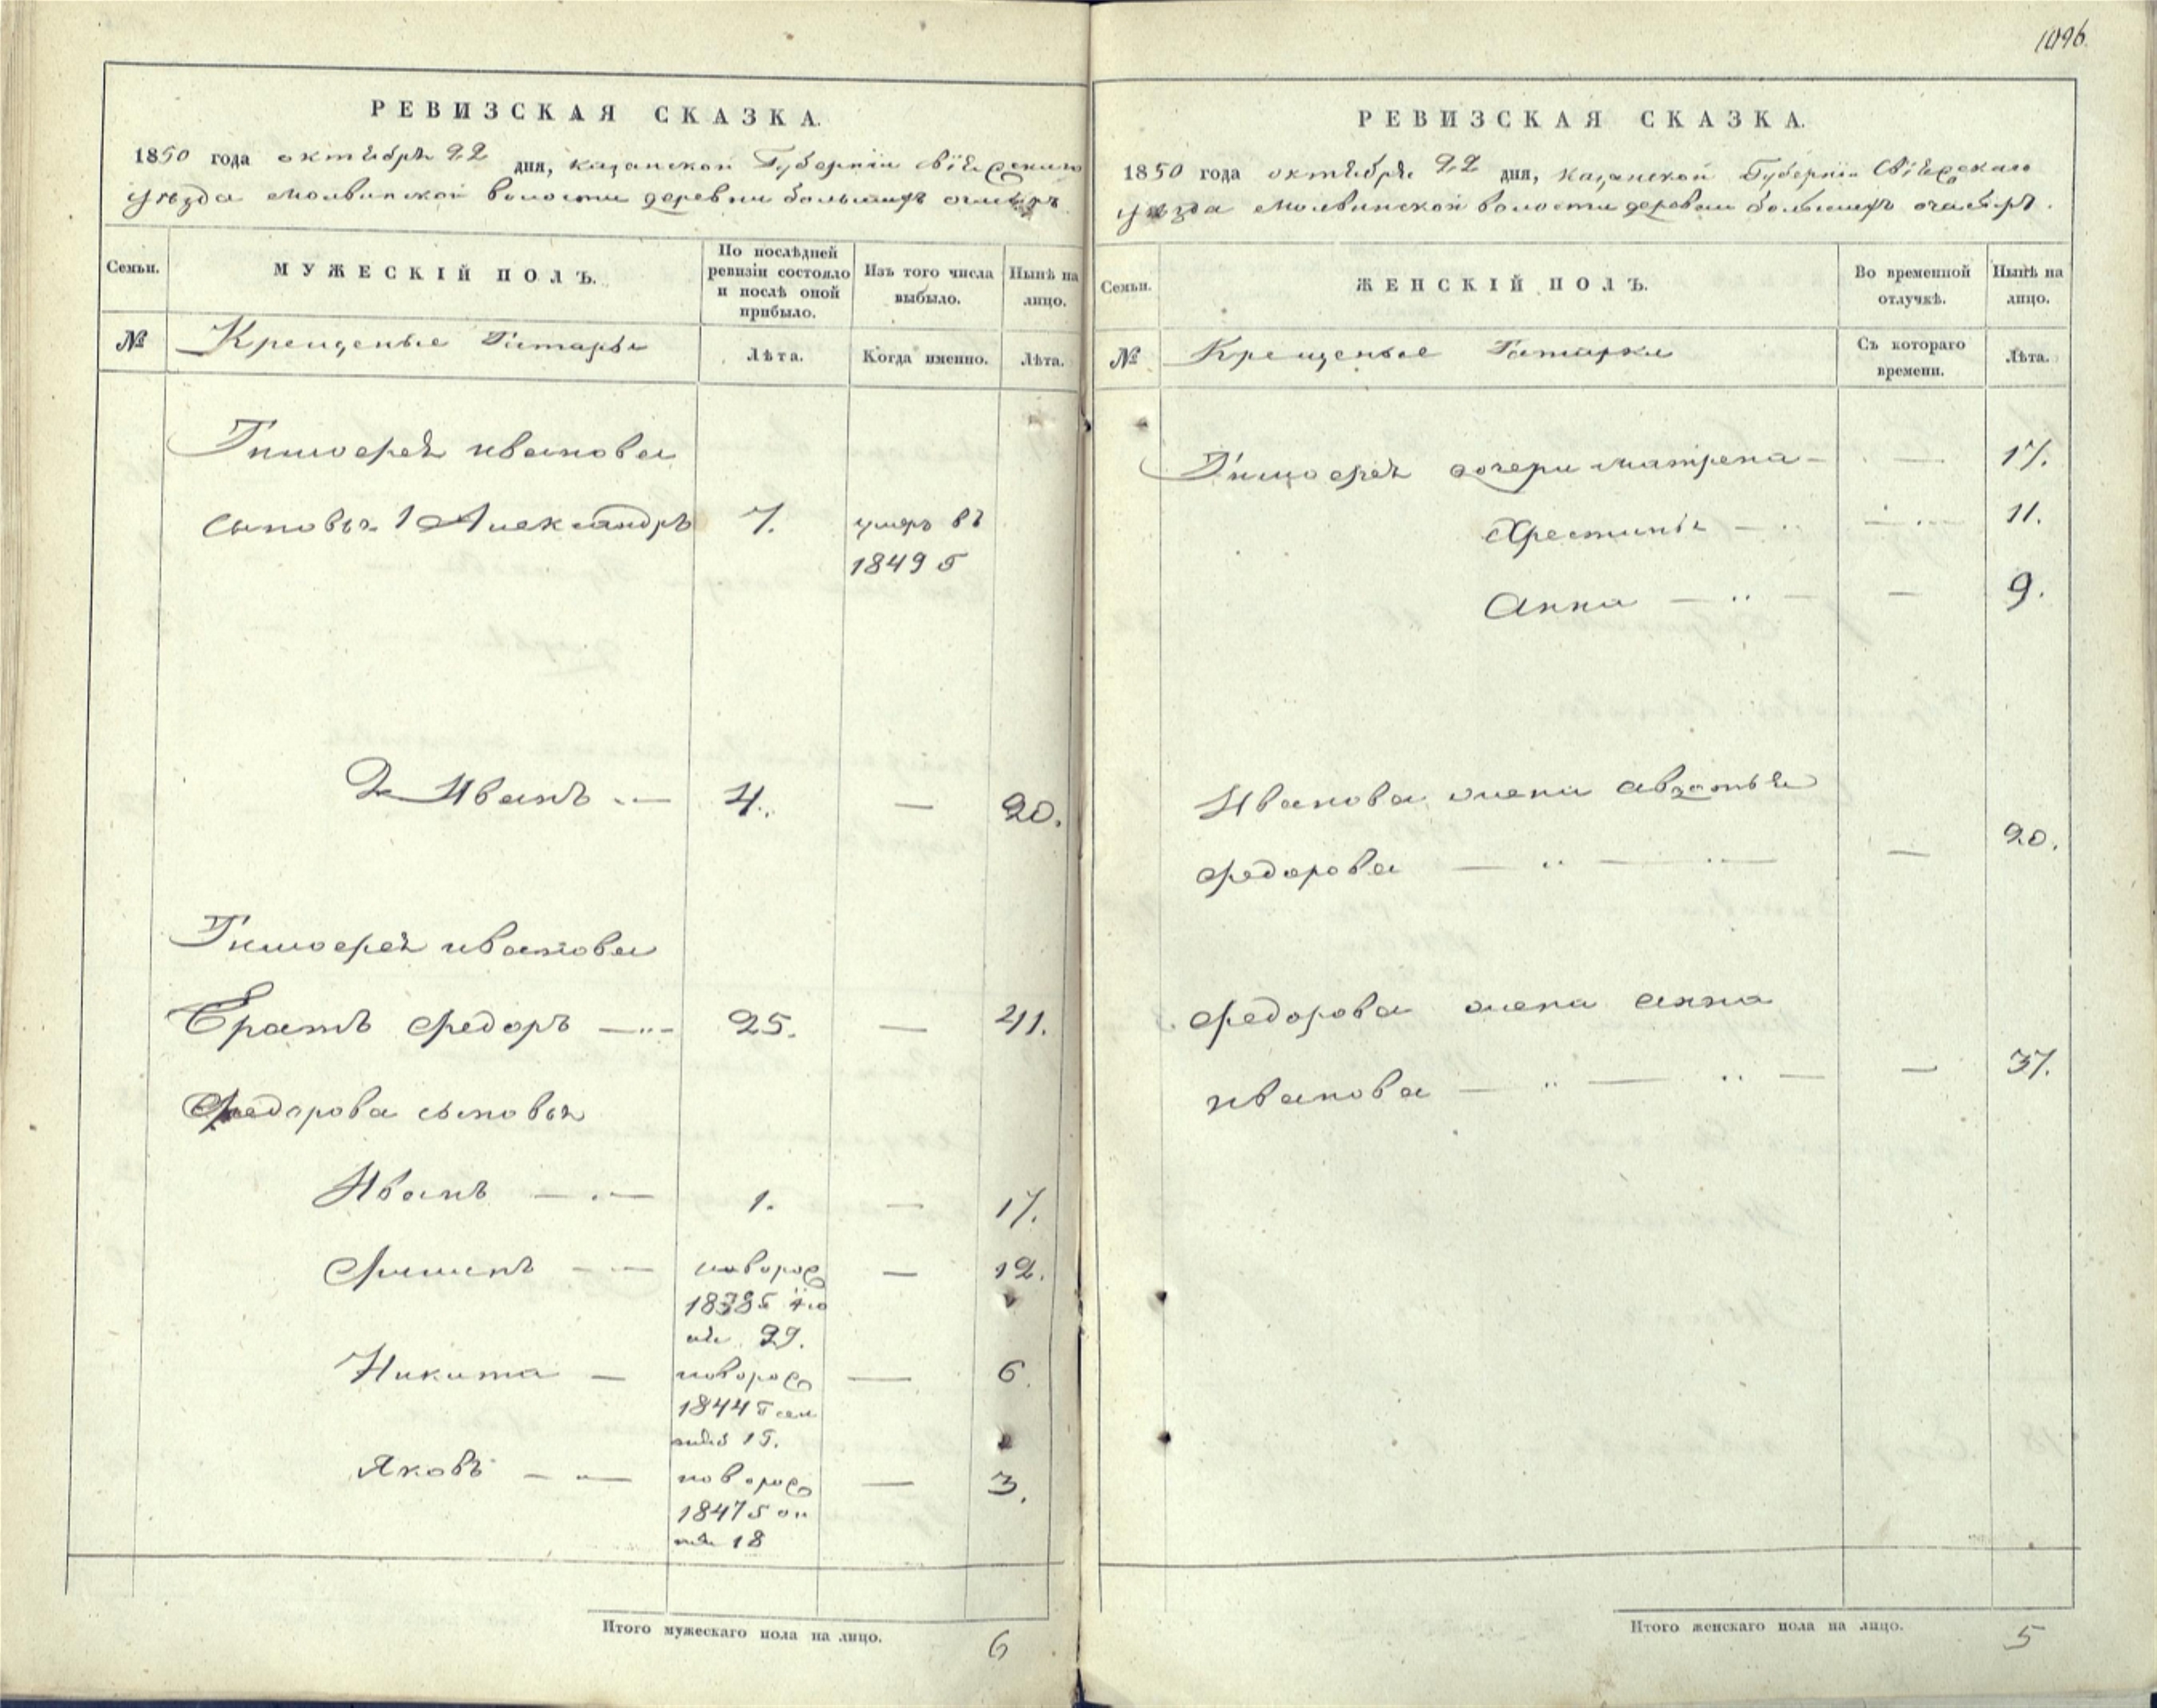 1096.
РЕВИЗСКАЯ СКАЗКА.
1850 года октября 22 дня, казанской Губернiи свiяжскаго
уѣзда молвинской волости деревни большихъ
Семьи. МУЖЕСКІЙ ПОЛЪ. По послѣдней ревизіи состояло и послѣ оной прибыло. Изъ того числа выбыло. Нынѣ на лицо.
№ Крещеные Татары Лѣта. Когда именно. Лѣта.
Тимофея иванова
сыновья 1 Александръ 7. умеръ въ
1849 г
2 Иванъ 4. — 20.
Тимофея иванова
Братъ федоръ — 25. — 41.
Федорова сыновья
Иванъ — 1. — 17.
новорож — 12.
1838 г
29.
Никита — новорож — 6.
1844 г сен
15.
Яковъ — новорож — 3.
1847 г ок
тя 18
Итого мужескаго пола на лицо. 6
РЕВИЗСКАЯ СКАЗКА.
1850 года октября 22 дня, казанской Губернiи Свiяжскаго
уѣзда молвинской волости деревни большихъ
Семьи. ЖЕНСКІЙ ПОЛЪ. Во временной отлучкѣ. Нынѣ на лицо.
№ Крещеные Татарки Съ котораго времени. Лѣта.
Тимофея дочери матрена — — 17.
Хрестинья — — 11.
Анна — — 9.
Иванова жена авдотья
федорова — — 20.
федорова жена анна
иванова — — 37.
Итого женскаго пола на лицо. 5